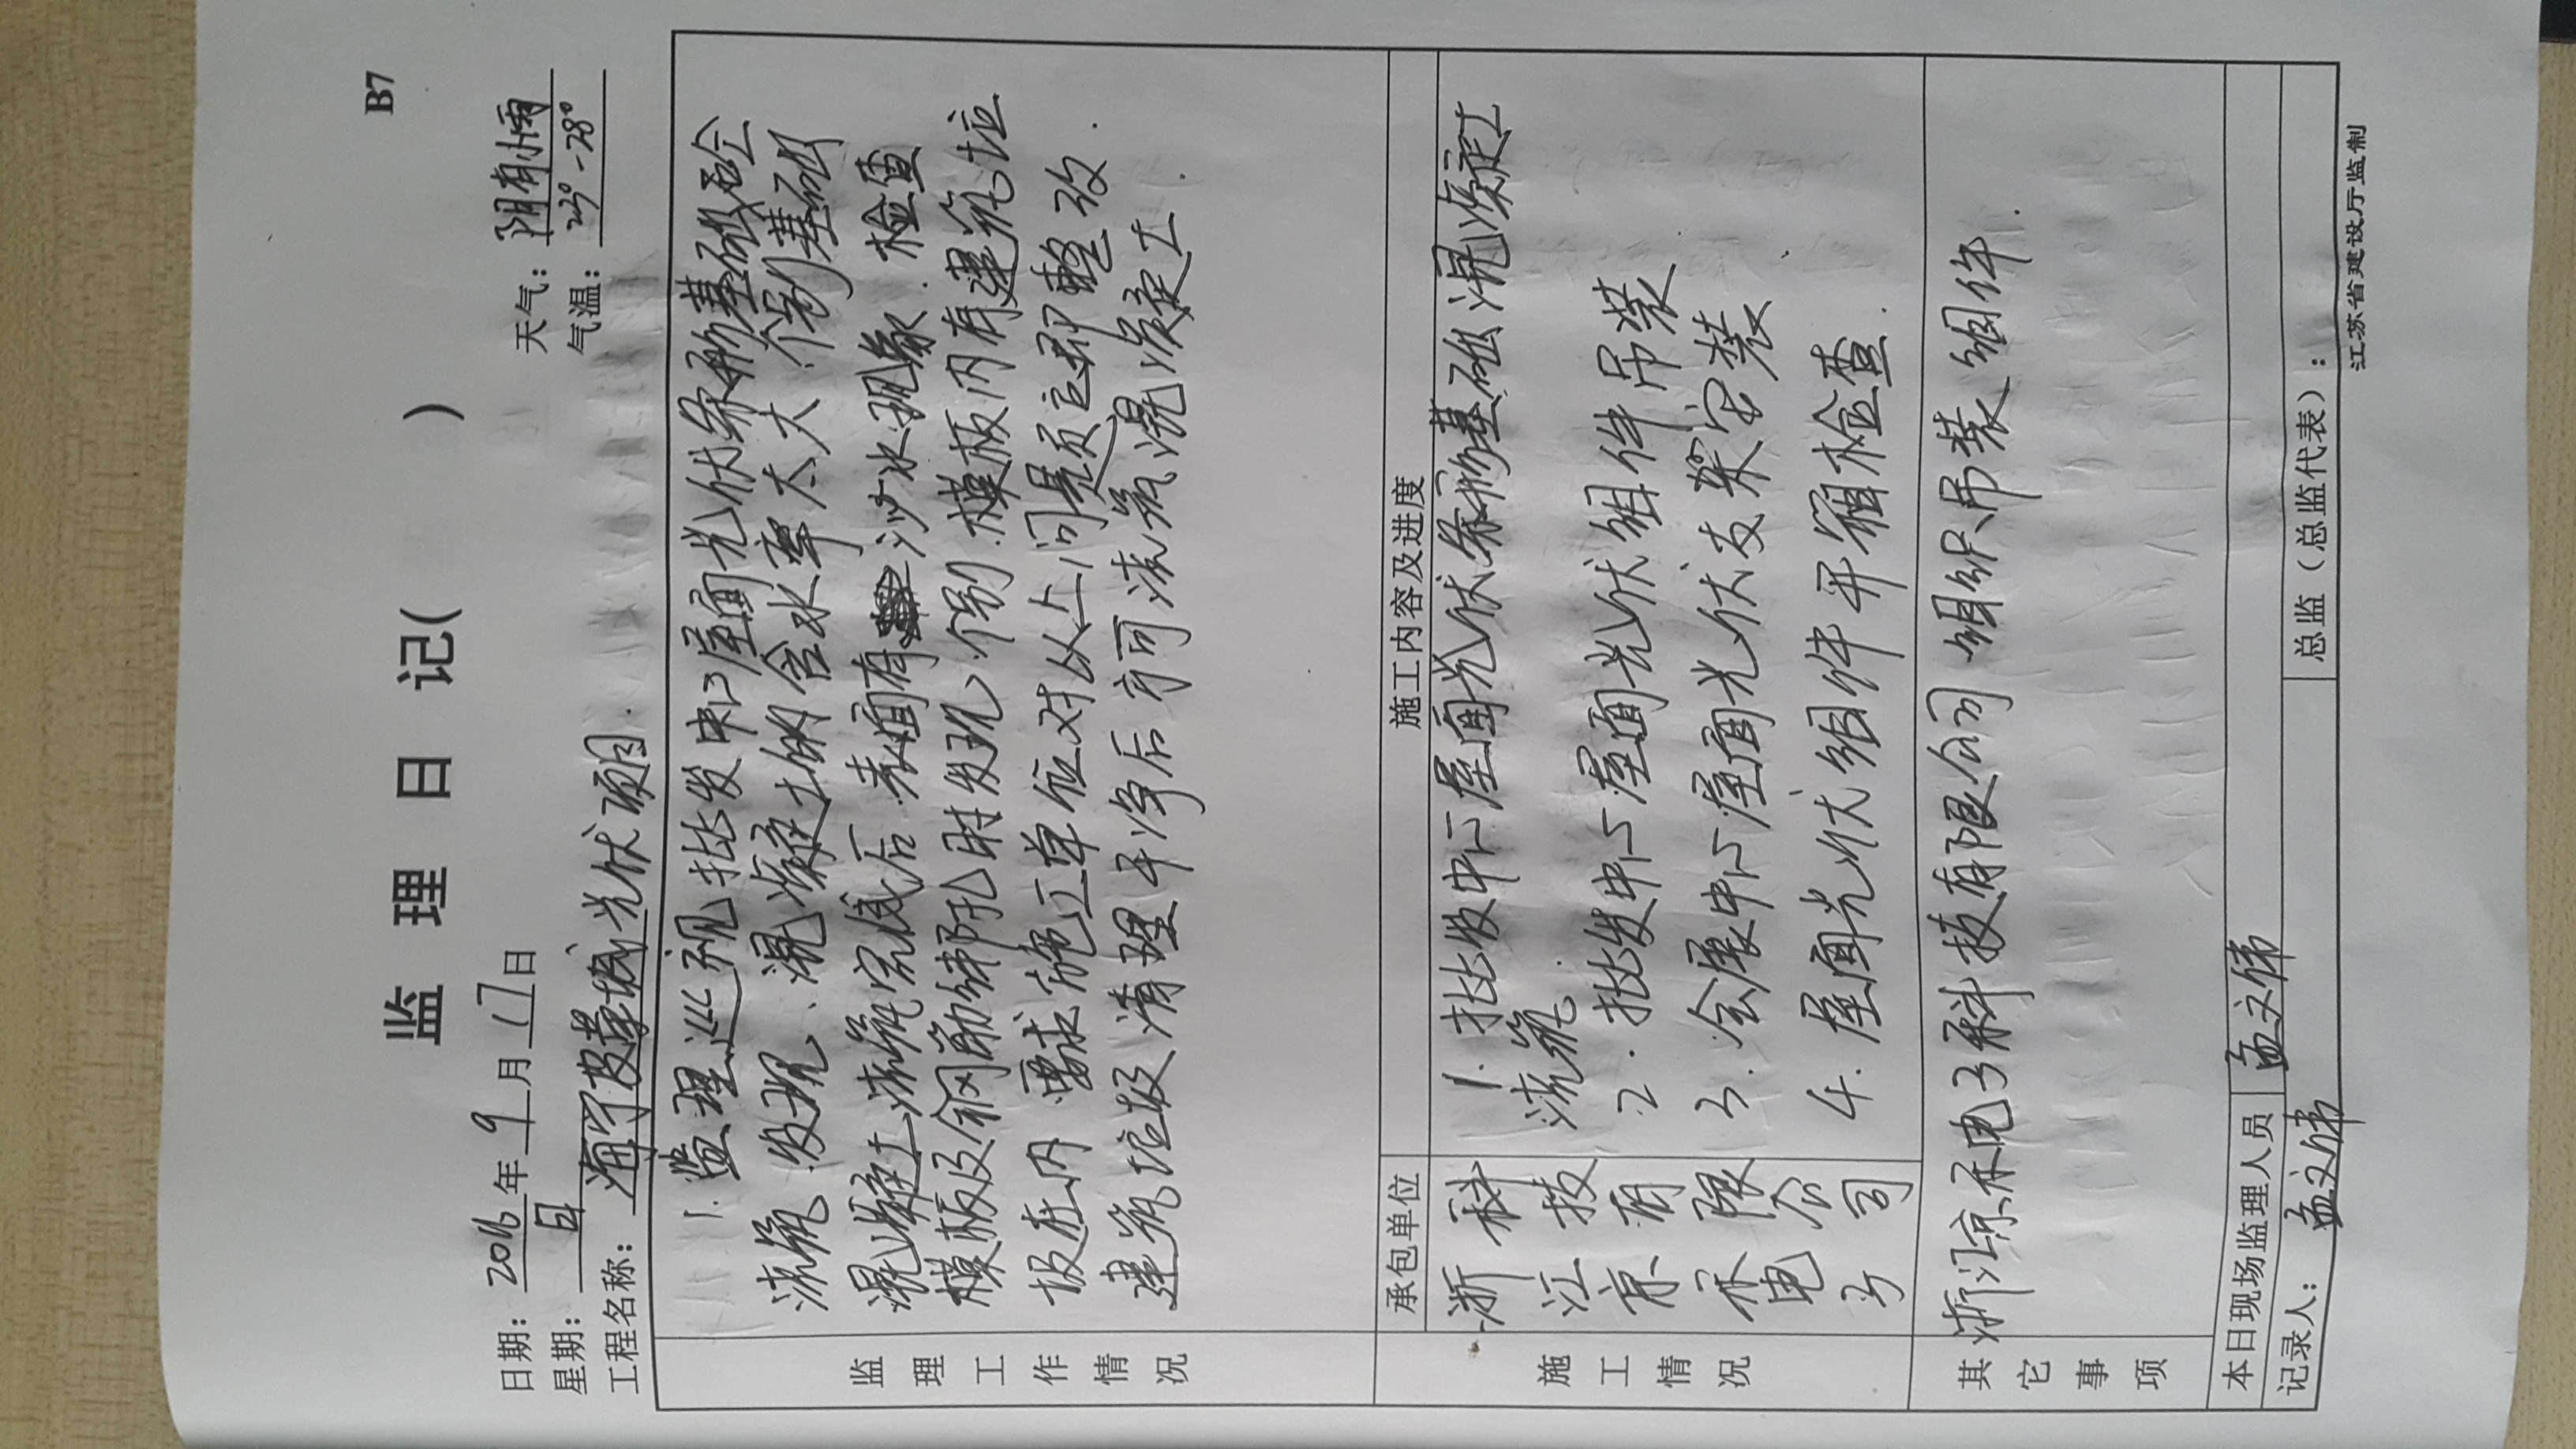 B7
监理日记( )
日期：2016年9月17日 天气：阴有小雨
星期：日 气温：23°-28°
工程名称：海宁皮革城光伏项目.
监理工作情况
1. 监理巡视批发中心屋面光伏条形基础砼
浇筑.发现、混凝土的含水率太大.个别基础
混凝土浇筑完成后.表面有沙水现象.检查
模板及钢筋绑扎时发现.个别.模板内有建筑垃
圾在内 要求施工单位对以上问题立即整改.
建筑垃圾清理干净后方可浇筑混凝土.
施工情况
承包单位 施工内容及进度
浙江京禾电子科技有限公司
1. 批发中心屋面光伏条形基础混凝土
浇筑.
2. 批发中心屋面光伏组件吊装
3. 会展中心屋面光伏支架安装
4. 屋面光伏组件开箱检查.
其它事项
浙江京禾电子科技有限公司 组织吊装组件.
本日现场监理人员 孟文伟
记录人：孟文伟 总监（总监代表）：
江苏省建设厅监制